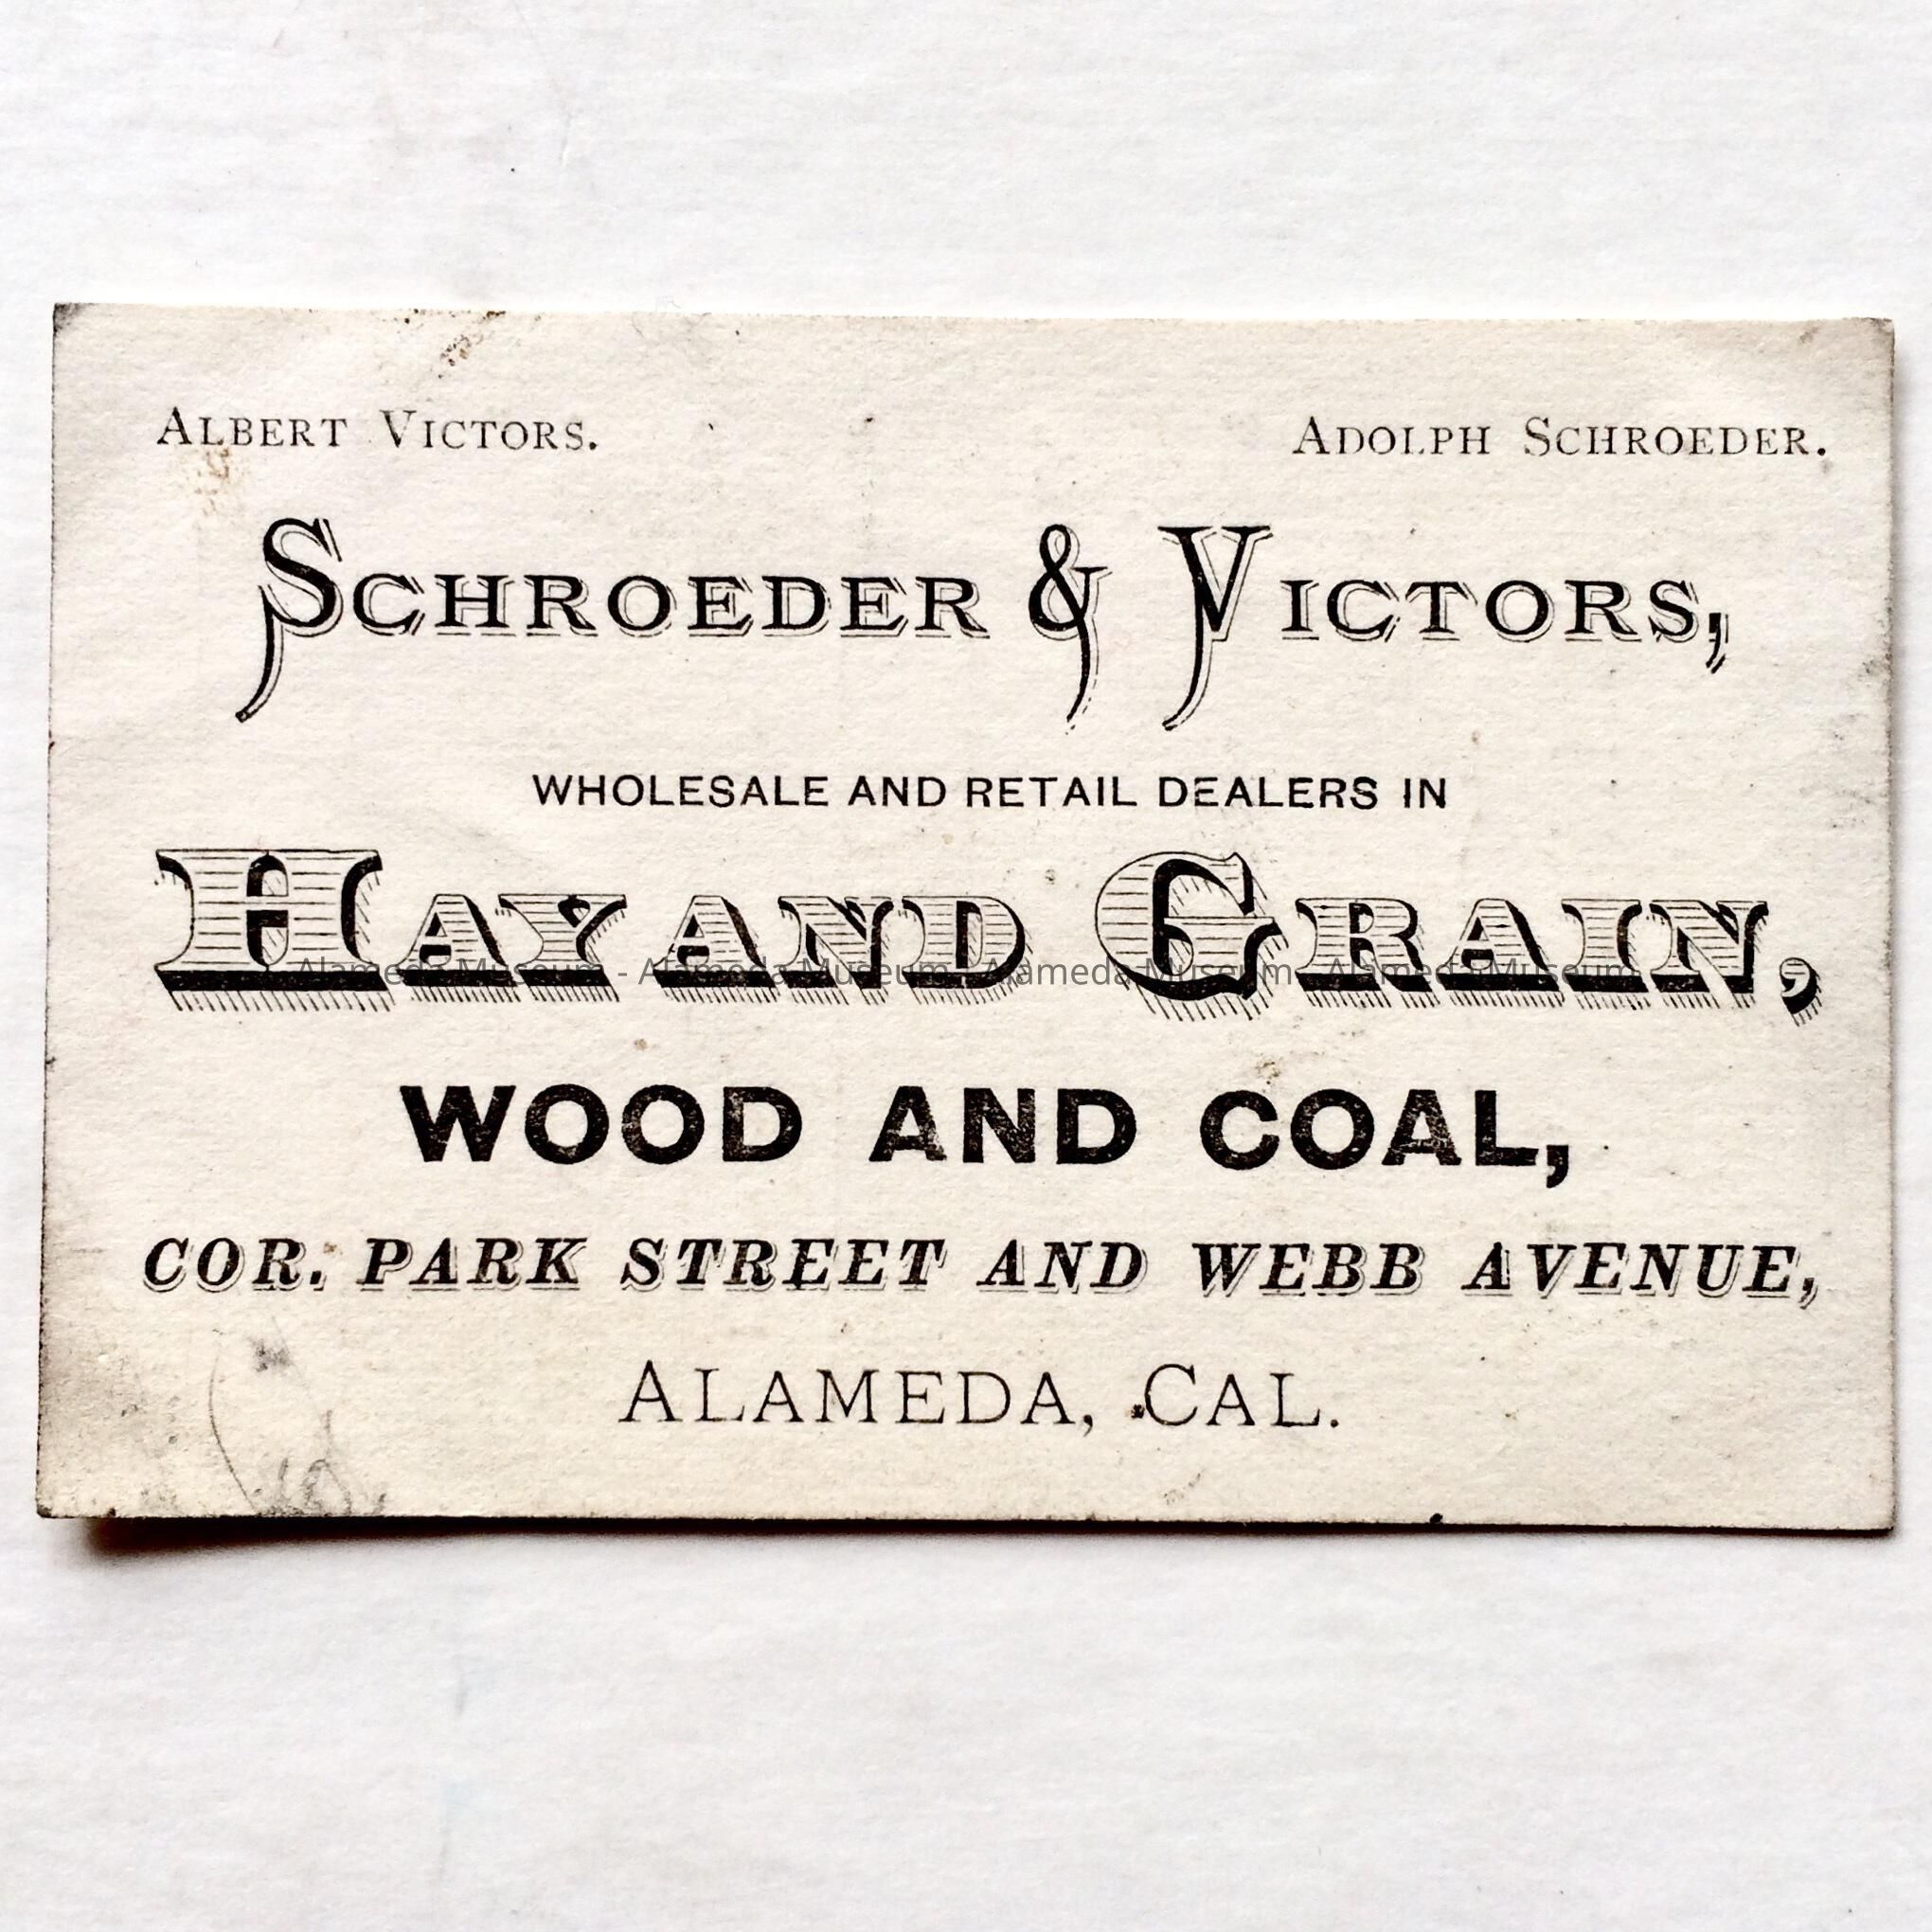 ALBERT VICTORS. ADOLPH SCHROEDER.
SCHROEDER & VICTORS,
WHOLESALE AND RETAIL DEALERS IN
HAY AND GRAIN,
Alameda Museum - Alameda Museum - Alameda Museum - Alameda Museum
WOOD AND COAL,
COR. PARK STREET AND WEBB AVENUE,
ALAMEDA, CAL.